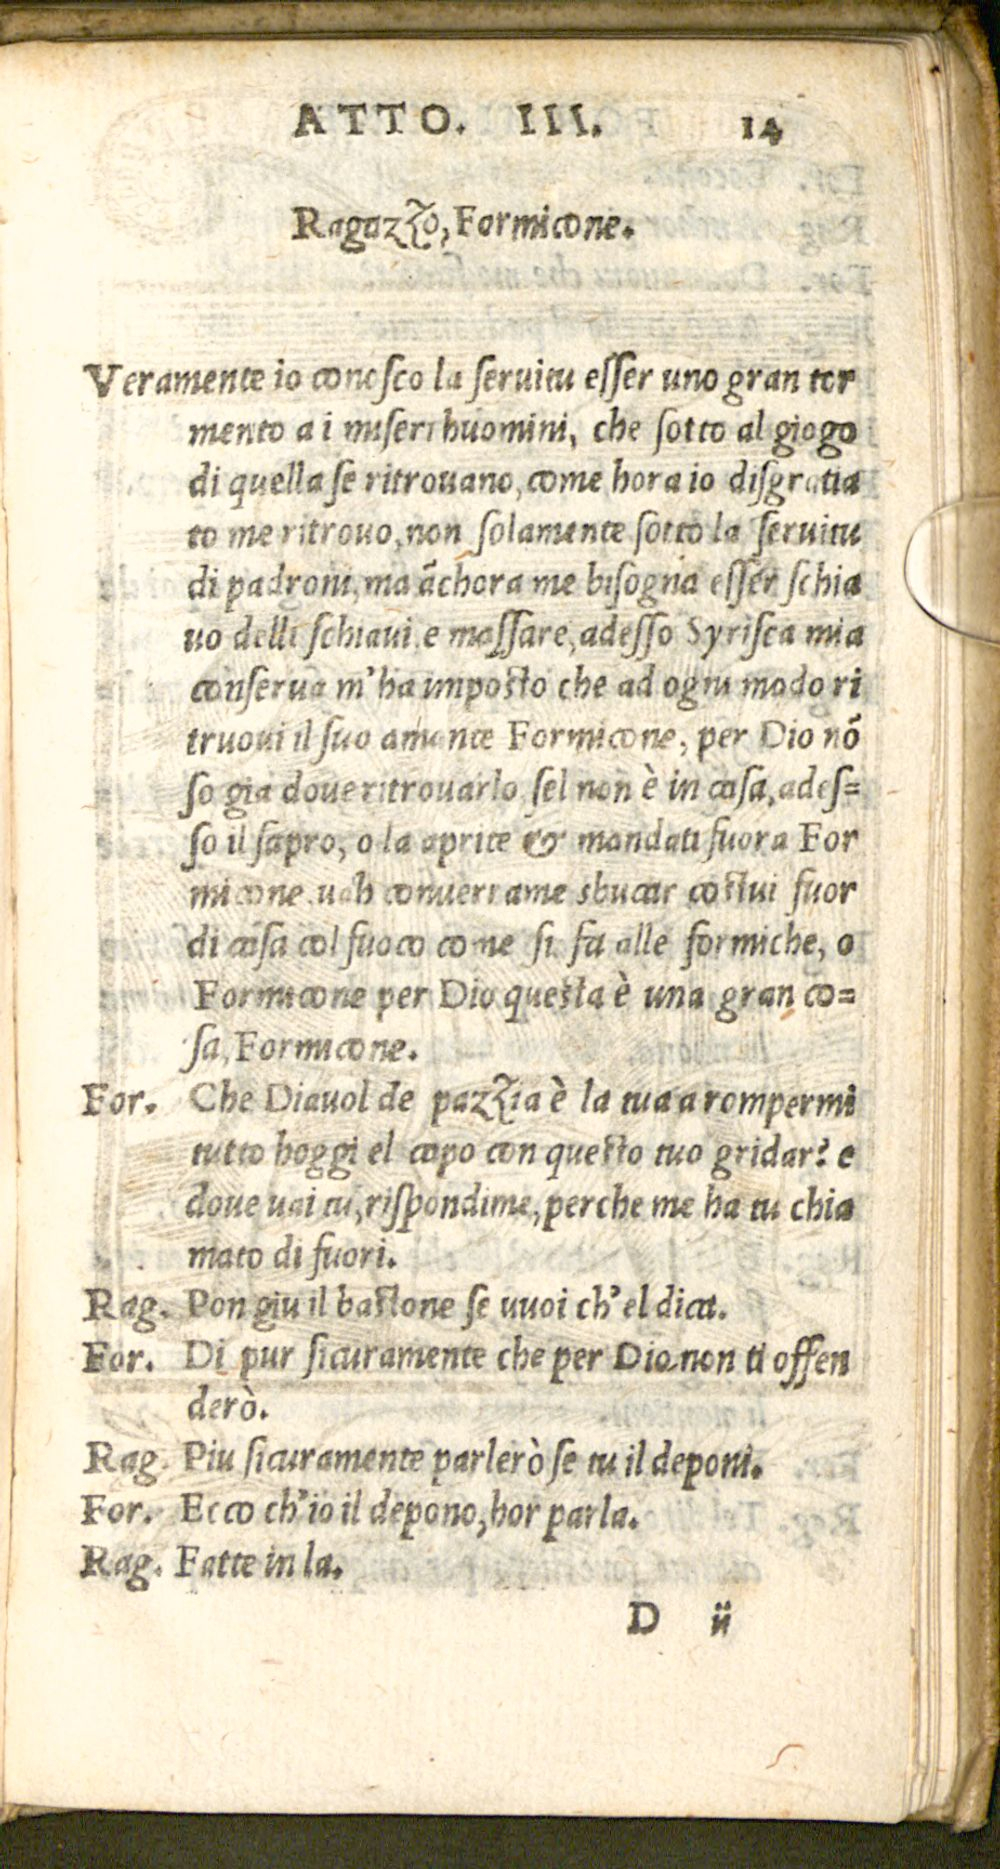 ATTO. III. 14
Ragazzo, Formicone.
Veramente io conosco la seruitu esser uno gran tor
mento a i miseri huomini, che sotto al giogo
di quella se ritrouano, come hora io disgratia
to me ritrouo, non solamente sotto la seruitu
di padroni, ma āchora me bisogna esser schia
uo delli schiaui e massare, adesso Syrisca mia
conserua m'ha imposto che ad ogni modo ri
truoui il suo amante Formicone, per Dio nō
so gia doue ritrouarlo sel non è in casa, ades=
so il sapro, o la aprite & mandati fuora For
micone uah conuerrame sbucar costui fuor
di casa col fuoco come si fa alle formiche, o
Formicone per Dio questa è una gran co=
sa, Formicone.
For. Che Diauol de pazzia è la tua a rompermi
tutto hoggi el capo con questo tuo gridar? e
doue uai tu, rispondime, perche me ha tu chia
mato di fuori.
Rag. Pon giu il bastone se uuoi ch'el dica.
For. Di pur sicuramente che per Dio non ti offen
derò.
Rag. Piu sicuramente parlerò se tu il deponi.
For. Ecco ch'io il depono, hor parla.
Rag. Fatte in la.
D ii